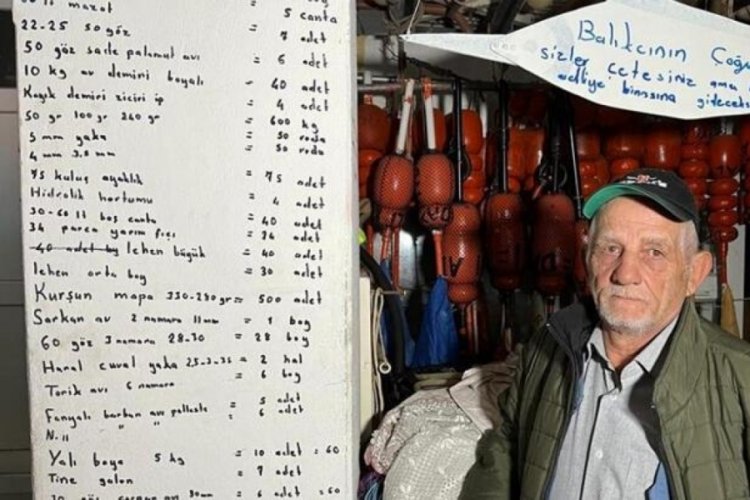 mazot = 5 canta
22-25 50 göz = 7 adet
50 göz sade palamut avı = 6 adet
10 kg av demiri boyalı = 40 adet
Kayık demiri zinciri ip = 4 adet
50 gr 100 gr 240 gr = 600 kg
5 mm yaka = 50 roda
4 mm 3.5 mm = 50 roda
75 kuluş ayaklık = 75 adet
Hidrolik hortumu = 4 adet
30-60 lt boş canta = 40 adet
34 parça yarım fıçı = 34 adet
40 adet boy lehen büyük = 40 adet
lehen orta boy = 30 adet
Kurşun mapa 330-280 gr = 500 adet
Sarkan av 2 namara 11 mm = 1 boy
60 göz 3 namara 28-30 = 28 boy
Hanal cuval yaka 25-3-35 = 2 hal
Torik avı 6 namara = 6 boy
Fanyalı barbun avı palleste = 5 adet
N.11 " " = 6 adet
Yalı boya 5 kg = 10 adet = 60
Tine galon = 7 adet
30mm = 6 adet = 60
Balıkcının Çoğu
sizler çetesiniz ama
adliye binasına gidecek